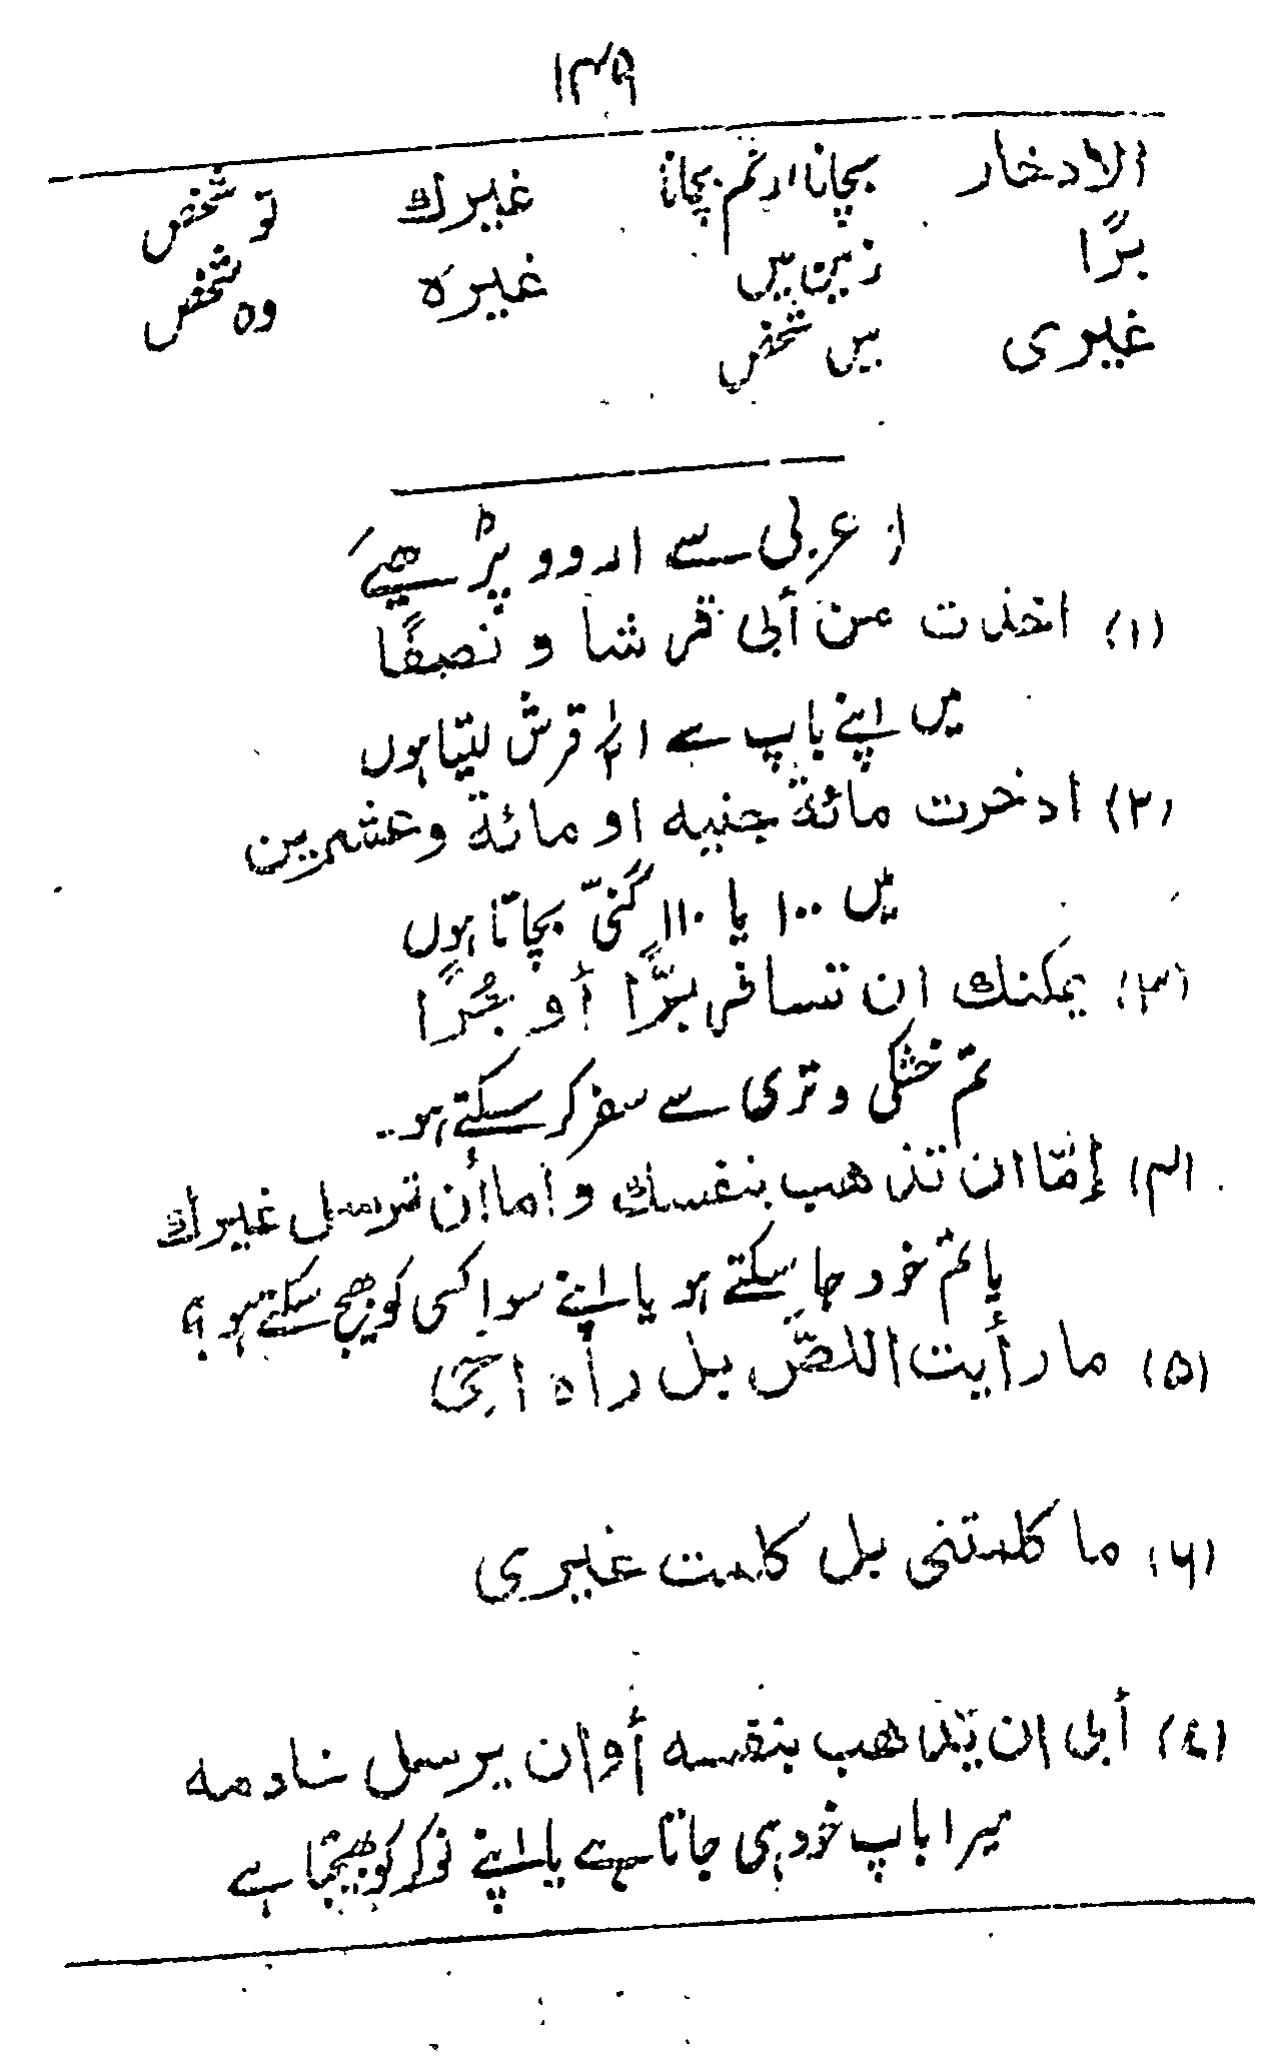 ۱۳۹
الادخار بچانا ارقم بچانا غیرك تو شخص
برًا زمین میں غیرہ وہ شخص
غیری میں شخص
۱. عربی سے اردو پڑھیئے
(۱) اخذت من أبی قرشا و نصفًا
میں اپنے باپ سے ۱ ۱/۲ قرش لیتا ہوں
(۲) ادخرت مائة جنیه او مائة وعشرین
میں ۱۰۰ یا ۱۱۰ گنیّ بچاتا ہوں
(۳) یمکنك ان تسافر برًّا أو بحُرًا
تم خشکی و تری سے سفر کر سکتے ہو..
(۴) إمّا ان تذهب بنفسك و اما أن ترسل غیرك
یا تم خود جا سکتے ہو یا اپنے سوا کسی کو بھیج سکتے ہو ؟
(۵) ما رأیت اللصّ بل رأہ اخی
(۶) ما کلمتنی بل کلمت غیری
(۷) أبی ان یذهب بنفسه أو ان یرسل خادمه
میرا باپ خود ہی جاتا ہے یا اپنے نوکر کو بھیجتا ہے